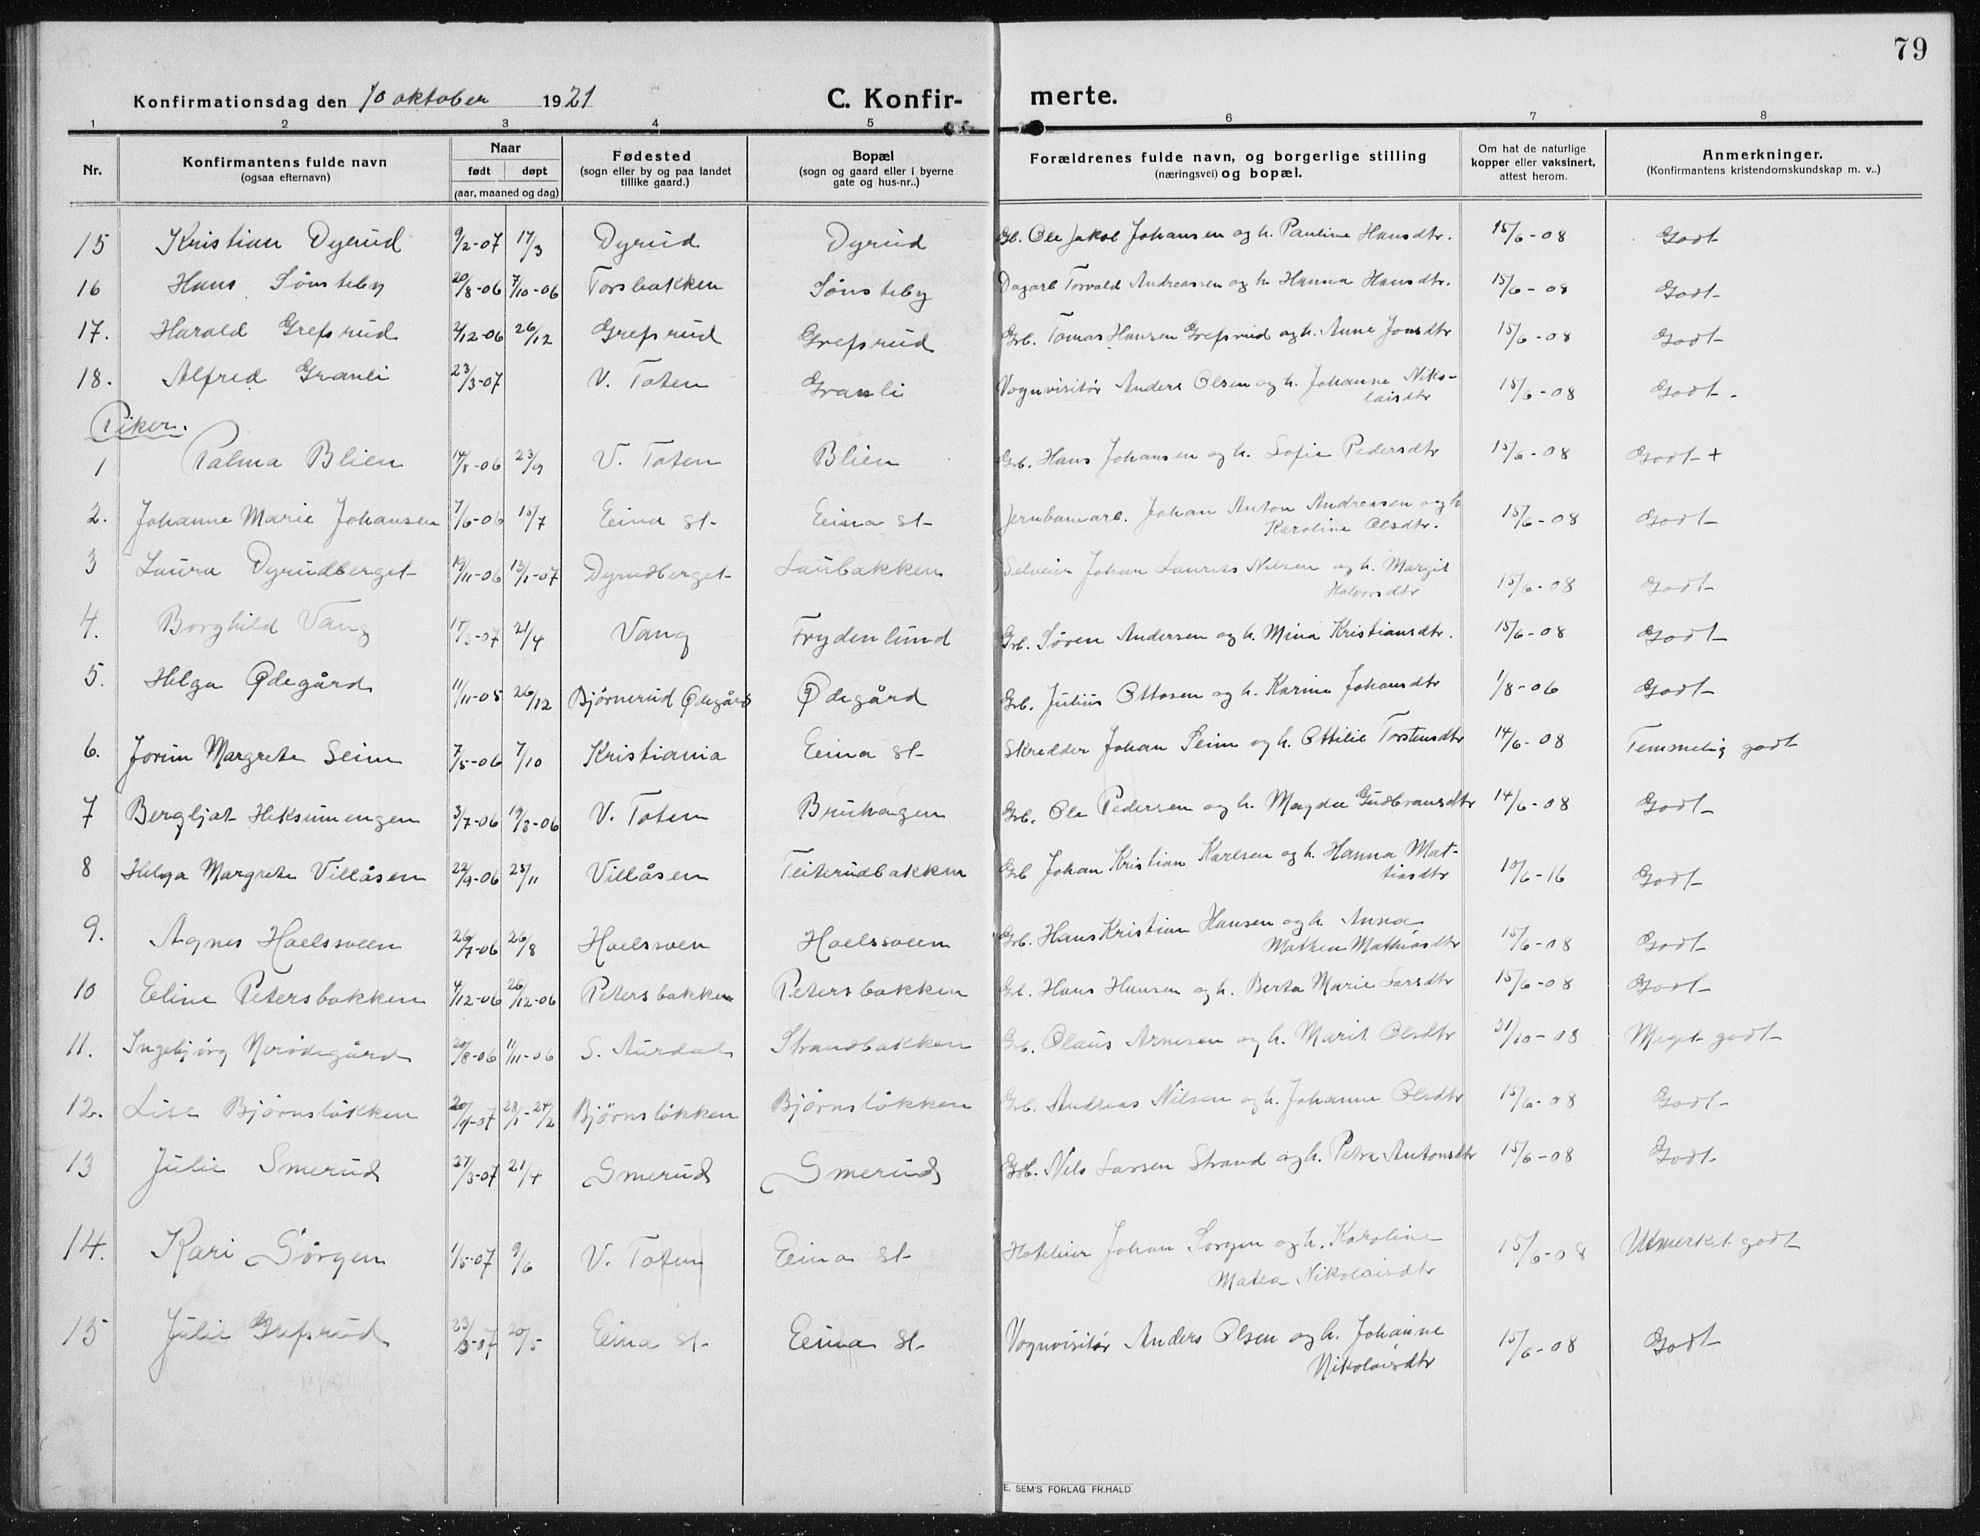 79
Konfirmationsdag den 10 oktober 1921 C. Konfir- merte.
1 2 3 4 5 6 7 8
Nr. Konfirmantens fulde navn (ogsaa efternavn) Naar født døpt (aar, maaned og dag) Fødested (sogn eller by og paa landet tillike gaard.) Bopæl (sogn og gaard eller i byerne gate og hus-nr..) Forældrenes fulde navn, og borgerlige stilling (næringsvei) og bopæl. Om hat de naturlige kopper eller vaksinert, attest herom. Anmerkninger. (Konfirmantens kristendomskundskap m. v..)
15 Kristian Dyrud 9/2-07 17/3 Dyrud Dyrud Gb. Ole Jakob Johansen og h. Pauline Hansdtr. 15/6-08 Godt
16 Hans Sønsteby 20/8-06 7/10-06 Torsbakken Sønsteby Dagarb Torvald Andreassen og h Hanna Hansdtr. 15/6-08 Godt
17. Harald Grefsrud 2/12-06 26/12 Grefsrud Grefsrud Grb. Tomas Hansen Grefsrud og h. Anne Jonsdtr 15/6-08 Godt
18. Alfred Granli 23/3-07 V. Toten Granli Vognvisitør Anders Olsen og h. Johanne Niko-
laisdtr 15/6-08 Godt.
Piker.
1 Palma Blien 14/8-06 23/9 V. Toten Blien Grb. Hans Johansen og h. Sofie Pedersdtr 15/6-08 Godt +
2. Johanne Marie Johansen 7/6-06 15/7 Eina st. Eina st. Jernbanearb. Johan Anton Andreassen og h
Karoline Olsdtr. 15/6-08 Godt
3 Laura Dyrudberget 19/11-06 13/1-07 Dyrudberget Laubakken Selveier Johan Laurits Nilsen og h. Margit
Halvorsdtr 15/6-08 Godt
4. Borghild Vang 17/3-07 21/4 Vang Frydenlund Grb. Søren Andersen og h. Mina Kristiansdtr. 15/6-08 Godt
5. Helga Ødegård 11/11-05 26/12 Bjørnerud Ødegård Ødegård Grb. Julius Ottosen og h. Karine Johansdtr 1/8-06 Godt
6. Jorun Margrete Seim 7/5-06 7/10 Kristiania Eina st. Skredder Johan Seim og h. Ottilie Torstensdtr 14/6-08 Temmelig godt
7 Bergljot Heksumengen 3/7-06 19/8-06 V. Toten Bruhagen Grb. Ole Pedersen og h. Magda Gudbransdtr 14/6-08 Godt
8 Helga Margrete Villåsen 22/9-06 25/11 Villåsen Teiterudbakken Grb Johan Kristian Karlsen og h. Hanna Mat-
tiasdtr 10/6-16 Godt
9. Agnes Haelssveen 26/7-06 26/8 Haelssven Haelssveen Grb. Hans Kristian Hansen og h. Anna
Mathea Mathiasdtr 15/6-08 Godt
10 Eline Petersbakken 4/12-06 26/12-06 Petersbakken Petersbakken Grb. Hans Hansen og h. Berta Marie Larsdtr 15/6-08 Godt
11. Ingebjørg Nerødegård 20/8-06 11/11-06 S. Aurdal Strandbakken Grb. Olaus Arnesen og h. Marit Olsdtr 21/10-08 Meget godt
12. Lise Bjørnsløkken 20/1-07 28/1-24/2 Bjørnsløkken Bjørnsløkken Grb. Andreas Nilsen og h. Johanne Olsdtr 15/6-08 Godt
13 Julie Smerud 27/3-07 21/4 Smerud Smerud Grb. Nels Larsen Strand og h. Petra Antonsdtr 15/6-08 Godt
14. Kari Sørgen 1/5-07 9/6 V. Toten Eina st. Hoteleier Johan Sorgen og h. Karoline
Matea Nikolaisdtr 15/6-08 Utmerket godt
15 Julie Grefsrud 23/3-07 20/5 Eina st. Eina st. Vognvisitør Anders Olsen og h. Johanne
Nikolaisdtr 15/6-08 Godt
E. SEM'S FORLAG FR.HALD